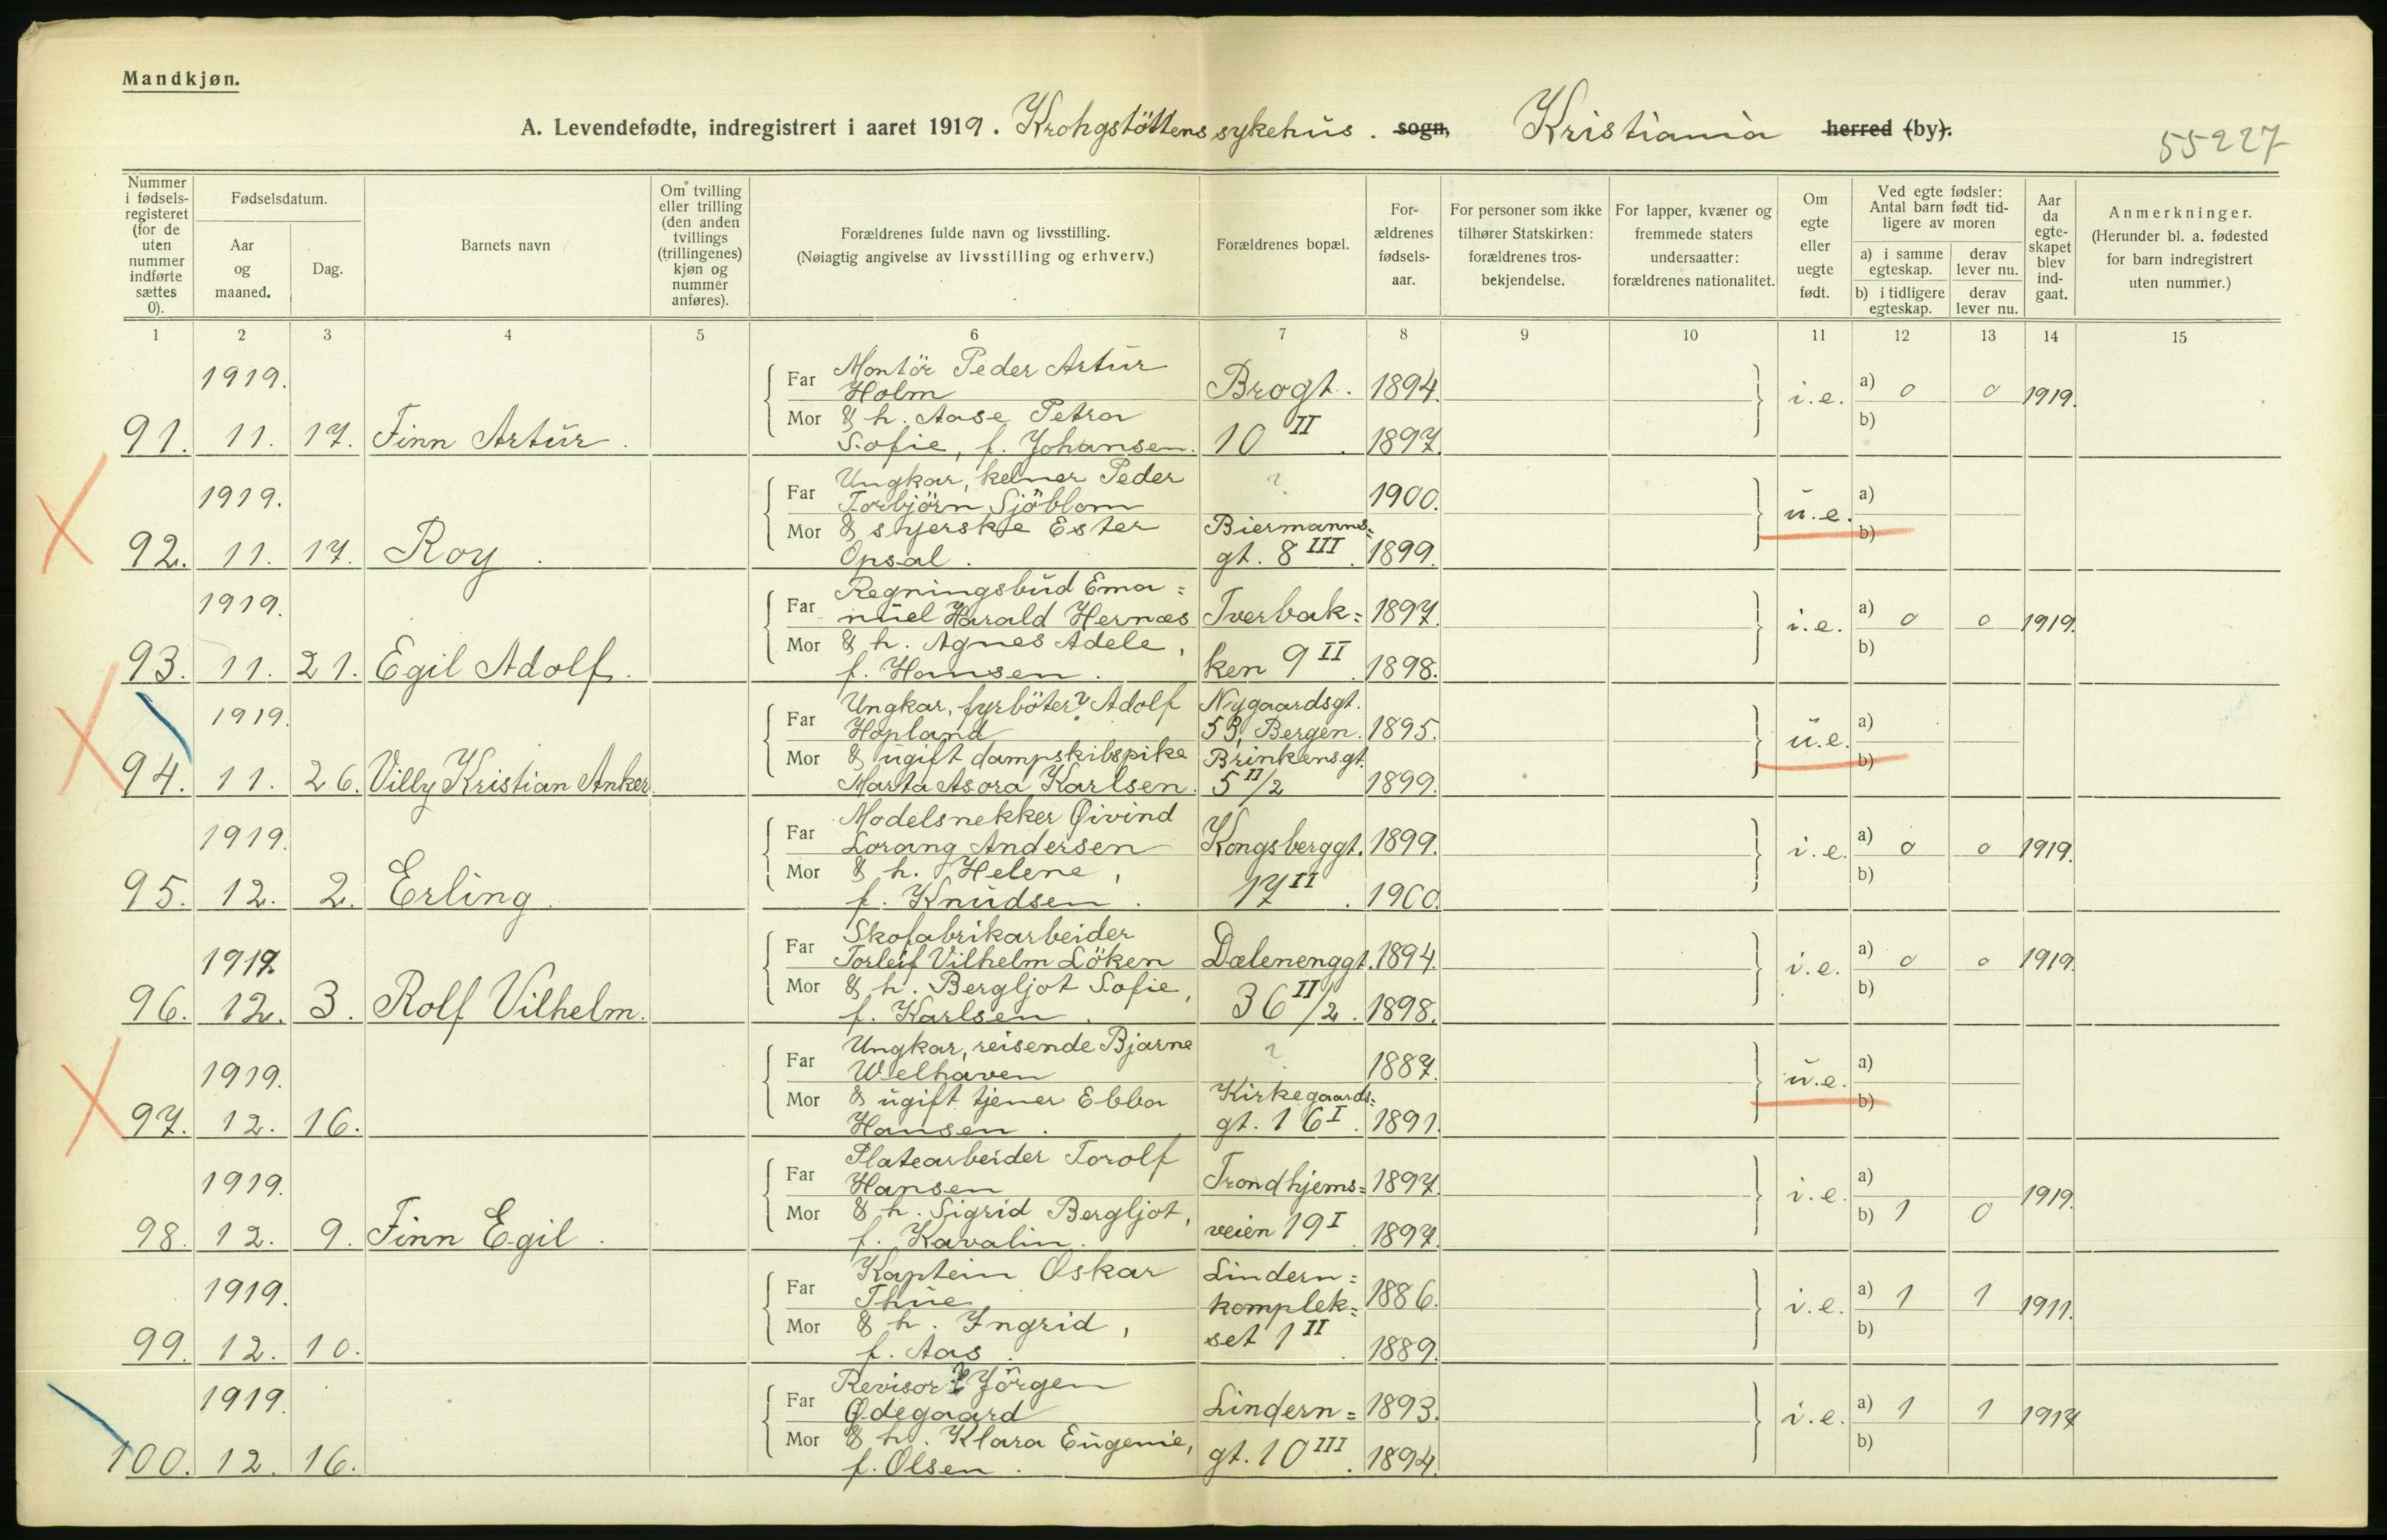 Mandkjøn.
A. Levendefødte, indregistrert i aaret 1919. Krohgstöttens sykehus. sogn, Kristiania herred (by).
55227
Nummer i fødselsregisteret (for de uten nummer indførte sættes 0).
Fødselsdatum.
Aar og maaned.
Dag.
Barnets navn
Om tvilling eller trilling (den anden tvillings (trillingenes) kjøn og nummer anføres).
Forældrenes fulde navn og livsstilling.
(Nøiagtig angivelse av livsstilling og erhverv.)
Forældrenes bopæl.
Forældrenes fødselsaar.
For personer som ikke tilhører Statskirken: forældrenes trosbekjendelse.
For lapper, kvæner og fremmede staters undersaatter: forældrenes nationalitet.
Om egte eller uegte født.
Ved egte fødsler: Antal barn født tidligere av moren
a) i samme egteskap.
derav lever nu.
b) i tidligere egteskap.
derav lever nu.
Aar da egteskapet blev indgaat.
Anmerkninger.
(Herunder bl. a. fødested for barn indregistrert uten nummer.)
1 2 3 4 5 6 7 8 9 10 11 12 13 14 15
1919.
91. 11. 17. Finn Artür.
Far Montör Peder Artür
Holm Brogt. 1894.
Mor & h. Aase Petra
Sofie, f. Johansen. 10 II. 1897.
i.e. a) 0 0 1919.
b)
1919.
92. 11. 17. Roy.
Far Ungkar, kelner Peder
Torbjörn Sjöblom ? 1900.
Mor & syerske Ester Biermanns=
Opsal. gt. 8 III. 1899.
ü.e. a)
b)
1919.
93. 11. 21. Egil Adolf.
Far Regningsbüd Ema=
nüel Harald Hernæs Tverbak= 1897.
Mor & h. Agnes Adele,
f. Hansen. ken 9 II. 1898.
i.e. a) 0 0 1919.
b)
1919.
94. 11. 26. Villy Kristian Anker.
Far Ungkar, fyrböter? Adolf Nygaardsgt.
Hopland 53, Bergen. 1895.
Mor & ügift dampskibspike Brinkensgt.
Marta Asora Karlsen. 5 II/2 1899.
ü.e. a)
b)
1919.
95. 12. 2. Erling.
Far Modelsnekker Øivind
Lorang Andersen Kongsberggt. 1899.
Mor & h. Helene,
f. Knüdsen. 17 II. 1900.
i.e. a) 0 0 1919.
b)
1919.
96. 12. 3. Rolf Vilhelm.
Far Skofabrikarbeider
Torleif Vilhelm Löken Dælenenggt. 1894.
Mor & h. Bergljot Sofie,
f. Karlsen. 36 II/2. 1898.
i.e. a) 0 0 1919.
b)
1919.
97. 12. 16.
Far Ungkar, reisende Bjarne
Welhaven ? 1887.
Mor & ügift tjener Ebba Kirkegaards=
Hansen. gt. 16 I. 1891.
ü.e. a)
b)
1919.
98. 12. 9. Finn Egil.
Far Platearbeider Torolf
Hansen Trondhjems= 1897.
Mor & h. Sigrid Bergljot,
f. Kavalin. veien 19 I. 1897.
i.e. a) 1919.
b) 1 0
1919.
99. 12. 10.
Far Kaptein Oskar Lindern=
Thüe komplek= 1886.
Mor & h. Ingrid,
f. Aas. set 1 II. 1889.
i.e. a) 1 1 1911.
b)
1919.
100. 12. 16.
Far Revisor Jörgen
Ødegaard Lindern= 1893.
Mor & h. Klara Eügenie,
f. Olsen. gt. 10 III. 1894.
i.e. a) 1 1 1917
b)